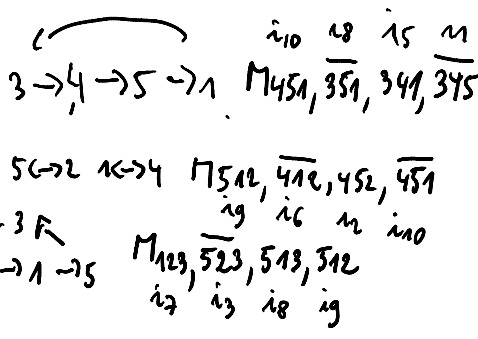 i10 i8 i5 i1
3 → 4 → 5 → 1 M451, 351, 341, 345
5↔2 1↔4 M512, 412, 452, 451
i9 i6 i2 i10
3
→1 →5 M123, 523, 513, 512
i7 i3 i8 i9